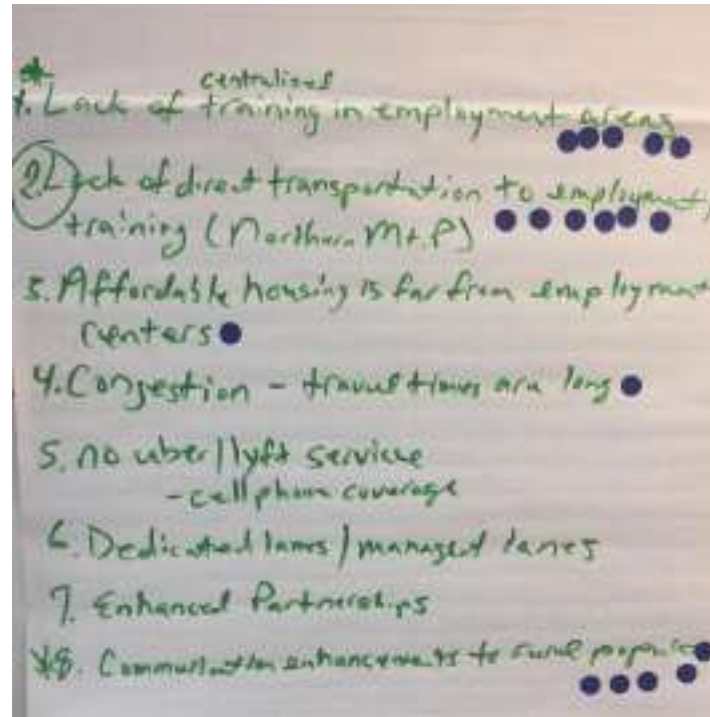 centralized
1. Lack of training in employment areas
2. Lack of direct transportation to employment,
training (Northern Mt. P)
3. Affordable housing is far from employment
centers
4. Congestion - travel times are long
5. no uber/lyft service
- cell phone coverage
6. Dedicated lanes/managed lanes
7. Enhanced Partnerships
*8. Communication enhancements to rural